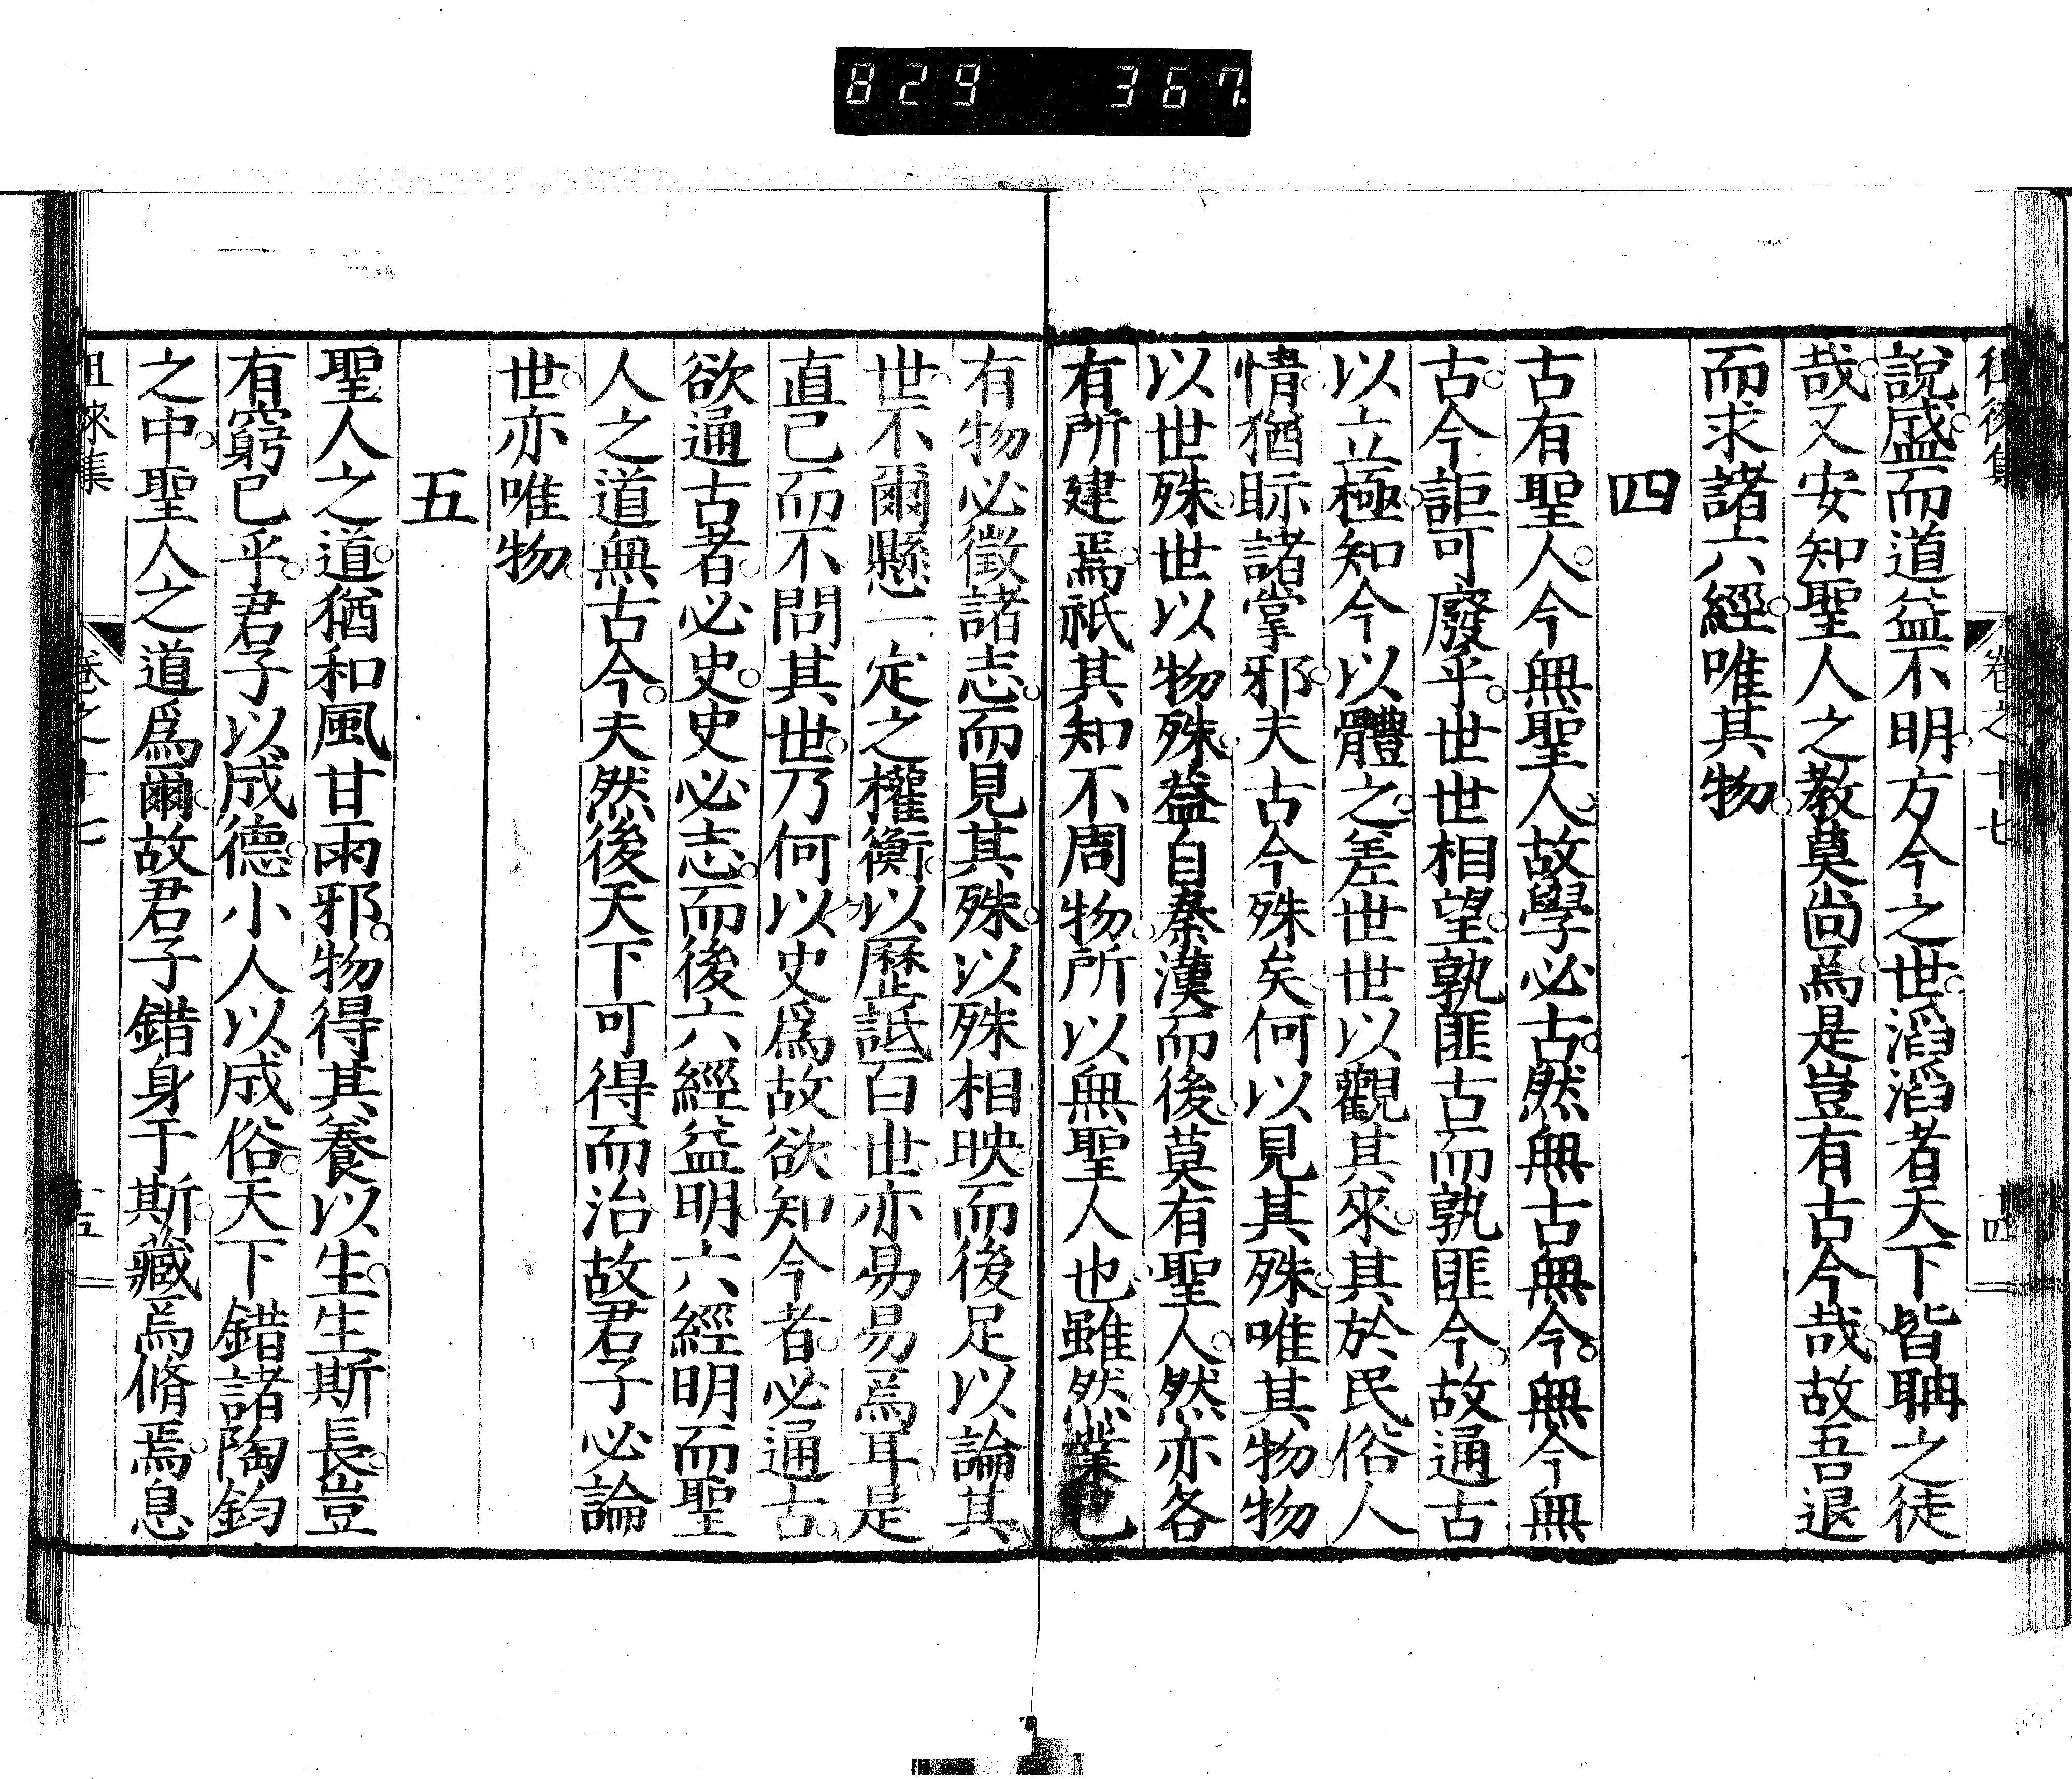 829 367
徂徠集 卷之十七 十四
說盛而道益不明方今之世滔滔者天下皆聃之徒
哉又安知聖人之教莫尚焉是豈有古今哉故吾退
而求諸六經唯其物
四
古有聖人今無聖人故學必古然無古無今無今無
古今詎可廢乎世世相望孰匪古而孰匪今故通古
以立極知今以體之差世世以觀其來其於民俗人
情猶眎諸掌邪夫古今殊矣何以見其殊唯其物物
以世殊世以物殊蓋自秦漢而後莫有聖人然亦各
有所建焉祇其知不周物所以無聖人也雖然業已
有物必徵諸志而見其殊以殊相映而後足以論其
世不爾懸一定之權衡以歷詆百世亦易易焉耳是
直己而不問其世乃何以史爲故欲知今者必通古
欲通古者必史史必志而後六經益明六經明而聖
人之道無古今夫然後天下可得而治故君子必論
世亦唯物
五
聖人之道猶和風甘雨邪物得其養以生生斯長豈
有窮已乎君子以成德小人以成俗天下錯諸陶鈞
之中聖人之道爲爾故君子錯身于斯藏焉脩焉息
徂徠集 卷之十七 十五